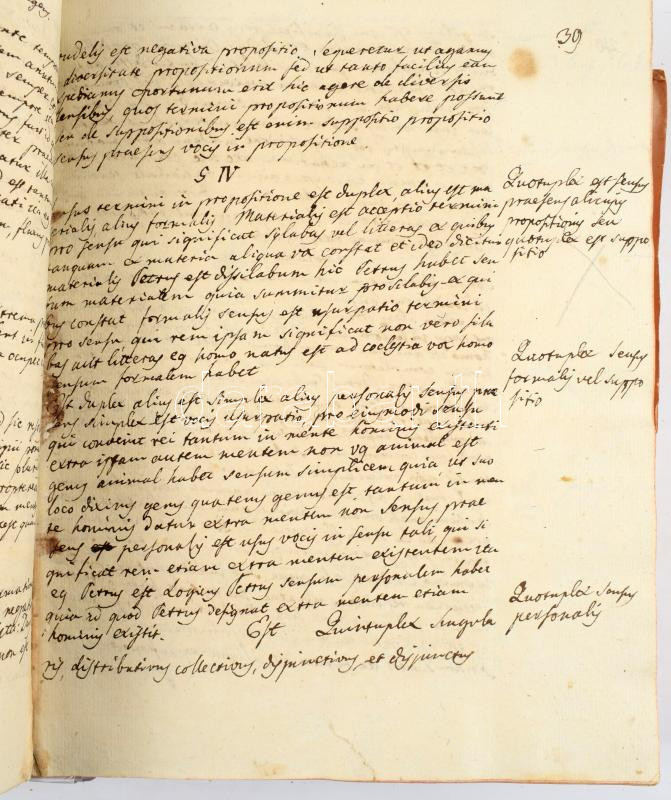 39
udelis est negativa propositio sequeretur ut agamus
diversitate propositionum sed ut tanto facilius eam
pediamus oportunum erit hic agere de diversis
sensibus, quos termini propositionum habere possunt
seu de suppositionibus est enim suppositio propositio
sensus praesens vocis in propositione
§ IV
sus termini in propositione est duplex, alius est ma
terialis alius formalis Materialis est acceptio termini
pro sensu qui significat sylabas vel litteras ex quibus
tanquam ex materia aliqua vox constat et ideo dicitur
materialis Petrus est dissilabum hic Petrus habet sen
sum materialem quia summitur pro silabis ex qui
bus constat formalis sensus est usurpatio termini
pro sensu qui rem ipsam significat non vero sila
bas aut litteras eg homo natus est ad coelestia vox homo
sensum formalem habet
Est duplex alius est simplex alius personalis sensus prae
sens simplex est vocis usurpatio pro eiusmodi sensu
qui convenit rei tantum in mente hominis existenti
extra ipsam autem mentem non vg animal est
genus animal habet sensum simplicem quia ut suo
loco diximus genus qua tenus genus est tantum in men
te hominis datur extra mentem non sensus prae
sens personalis est usus vocis in sensu tali qui si
gnificat rem etiam extra mentem existentem ita
eg Petrus est Logicus Petrus sensum personalem habet
quia id quod Petrus designat extra mentem etiam
hominis existit. Est Quintuplex singula
ris, distributivus collectivus, disjunctivus et disjunctus
Quotuplex est sensus
praesens alicujus
propositionis seu
quotuplex est suppo
sitio
Quotuplex sensus
formalis vel suppo
sitio
Quotuplex sensus
personalis